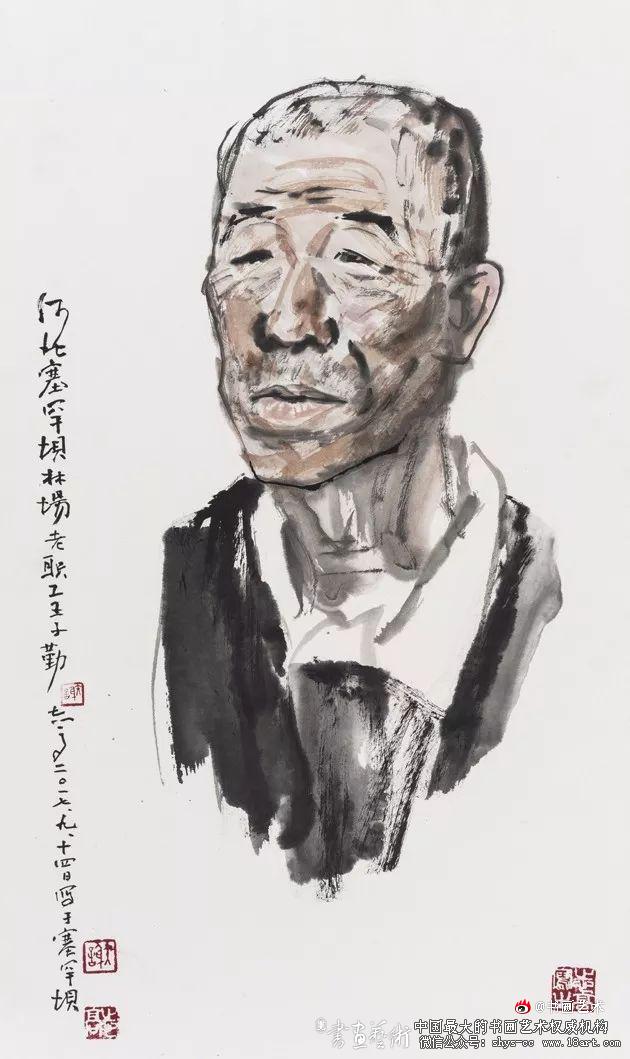 河北塞罕坝林場老职工王子勤
志高二〇一七.九.十四日写于塞罕坝
謝
謝
志高
@书画艺术
書画藝術
中国最大的书画艺术权威机构
微信公众号: shys-cc www.18art.com